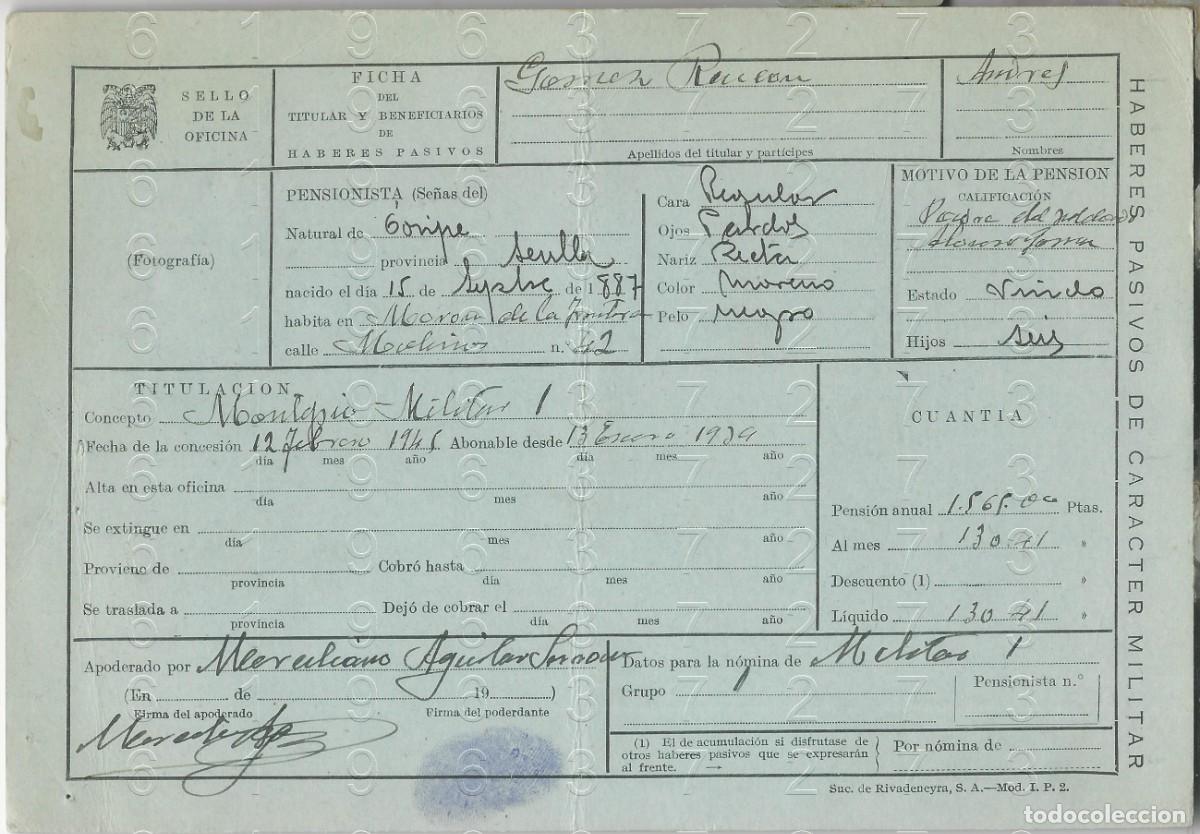 SELLO
DE LA
OFICINA
FICHA
DEL
TITULAR Y BENEFICIARIOS
DE
HABERES PASIVOS
Gomez Rincon
Apellidos del titular y partícipes
Andres
Nombres
(Fotografía)
PENSIONISTA (Señas del)
Natural de Coripe
provincia Sevilla
nacido el día 15 de Sepbre de 1887
habita en Moron de la Frontera
calle Molinos n. 42
Cara Regular
Ojos Pardos
Nariz Recta
Color Moreno
Pelo negro
MOTIVO DE LA PENSION
CALIFICACIÓN
Padre del soldado
Gomez
Estado Viudo
Hijos seis
HABERES PASIVOS DE CARACTER MILITAR
TITULACION
Concepto Montepio-Militar 1
Fecha de la concesión 12 febrero 1945 Abonable desde 13 Enero 1939
día mes año día mes año
Alta en esta oficina
día mes año
Se extingue en
día mes año
Proviene de Cobró hasta
provincia día mes año
Se traslada a Dejó de cobrar el
provincia día mes año
CUANTIA
Pensión anual 1.565.00 Ptas.
Al mes 130 41 »
Descuento (1) »
Líquido 130 41 »
Apoderado por Marceliano Aguilar
(En de 19 )
Firma del apoderado Firma del poderdante
Datos para la nómina de Militar 1
Grupo
Pensionista n.º
(1) El de acumulación si disfrutase de
otros haberes pasivos que se expresarán
al frente. →
Por nómina de
Suc. de Rivadeneyra, S. A.—Mod. I. P. 2.
6 1 9 6 3 7 2 7 3
todocoleccion